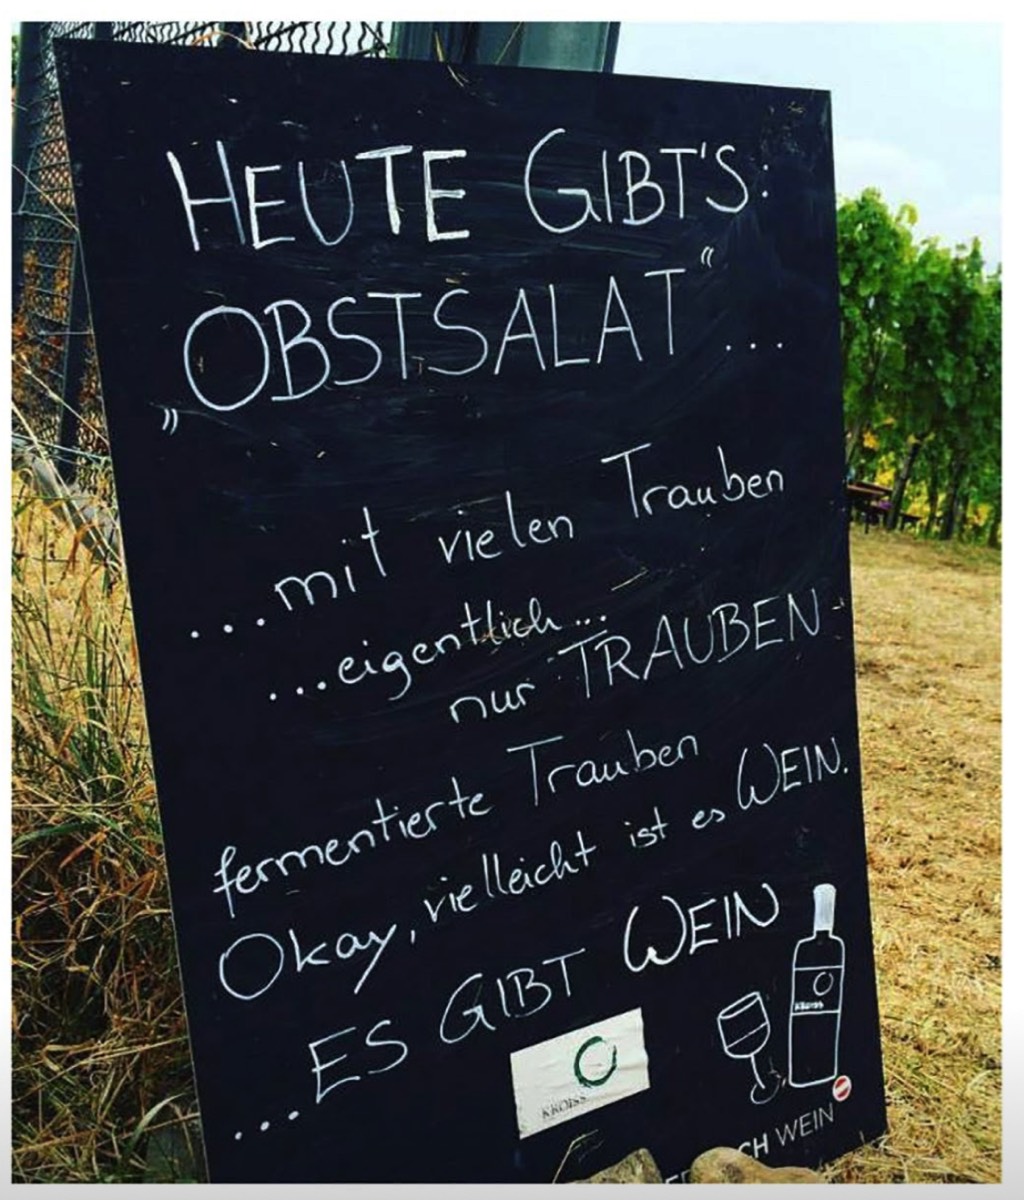 HEUTE GIBT'S:
„OBSTSALAT“...
...mit vielen Trauben
...eigentlich...
nur TRAUBEN
fermentierte Trauben
Okay, vielleicht ist es WEIN.
...ES GIBT WEIN
KROISS
KROISS
WEIN